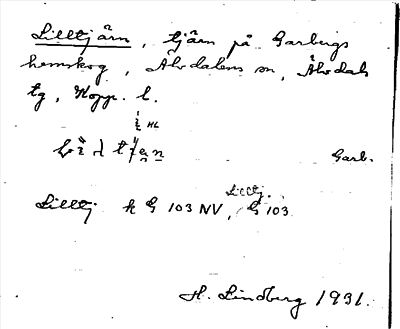 Lilltjärn, tjärn på Garbergs
hemskog, Älvdalens sn, Älvdals
tg, Kopp. l.
HL
Garb.
Lilltj.
Lilltj k G 103 NV, G 103
H. Lindberg 1931.